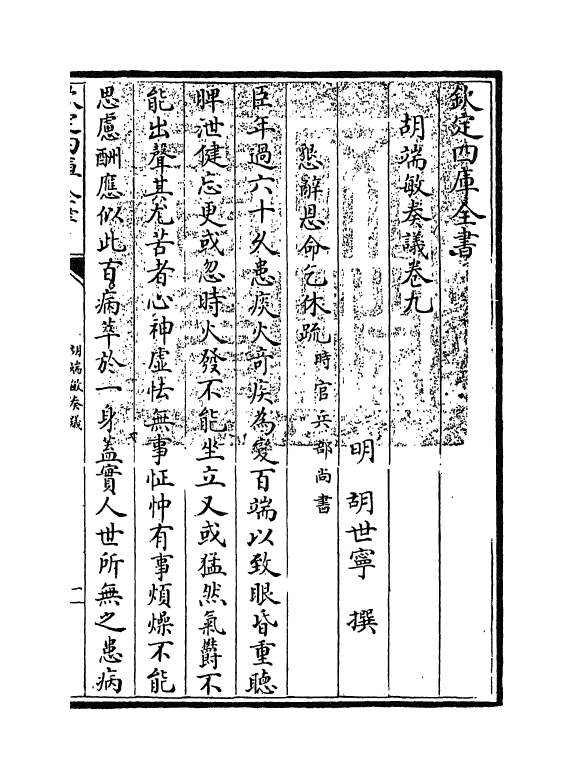 欽定四庫全書
胡端敏奏議卷九
明 胡世寧 撰
懇辭恩命乞休疏時官兵部尚書
臣年過六十久患痰火奇疾為變百端以致眼昏重聽
脾泄健忘更或忽時火發不能坐立又或猛然氣欝不
能出聲其尤苦者心神虛怯無事怔忡有事煩燥不能
思慮酬應似此百病萃於一身蓋實人世所無之患病
胡端敏奏議
一